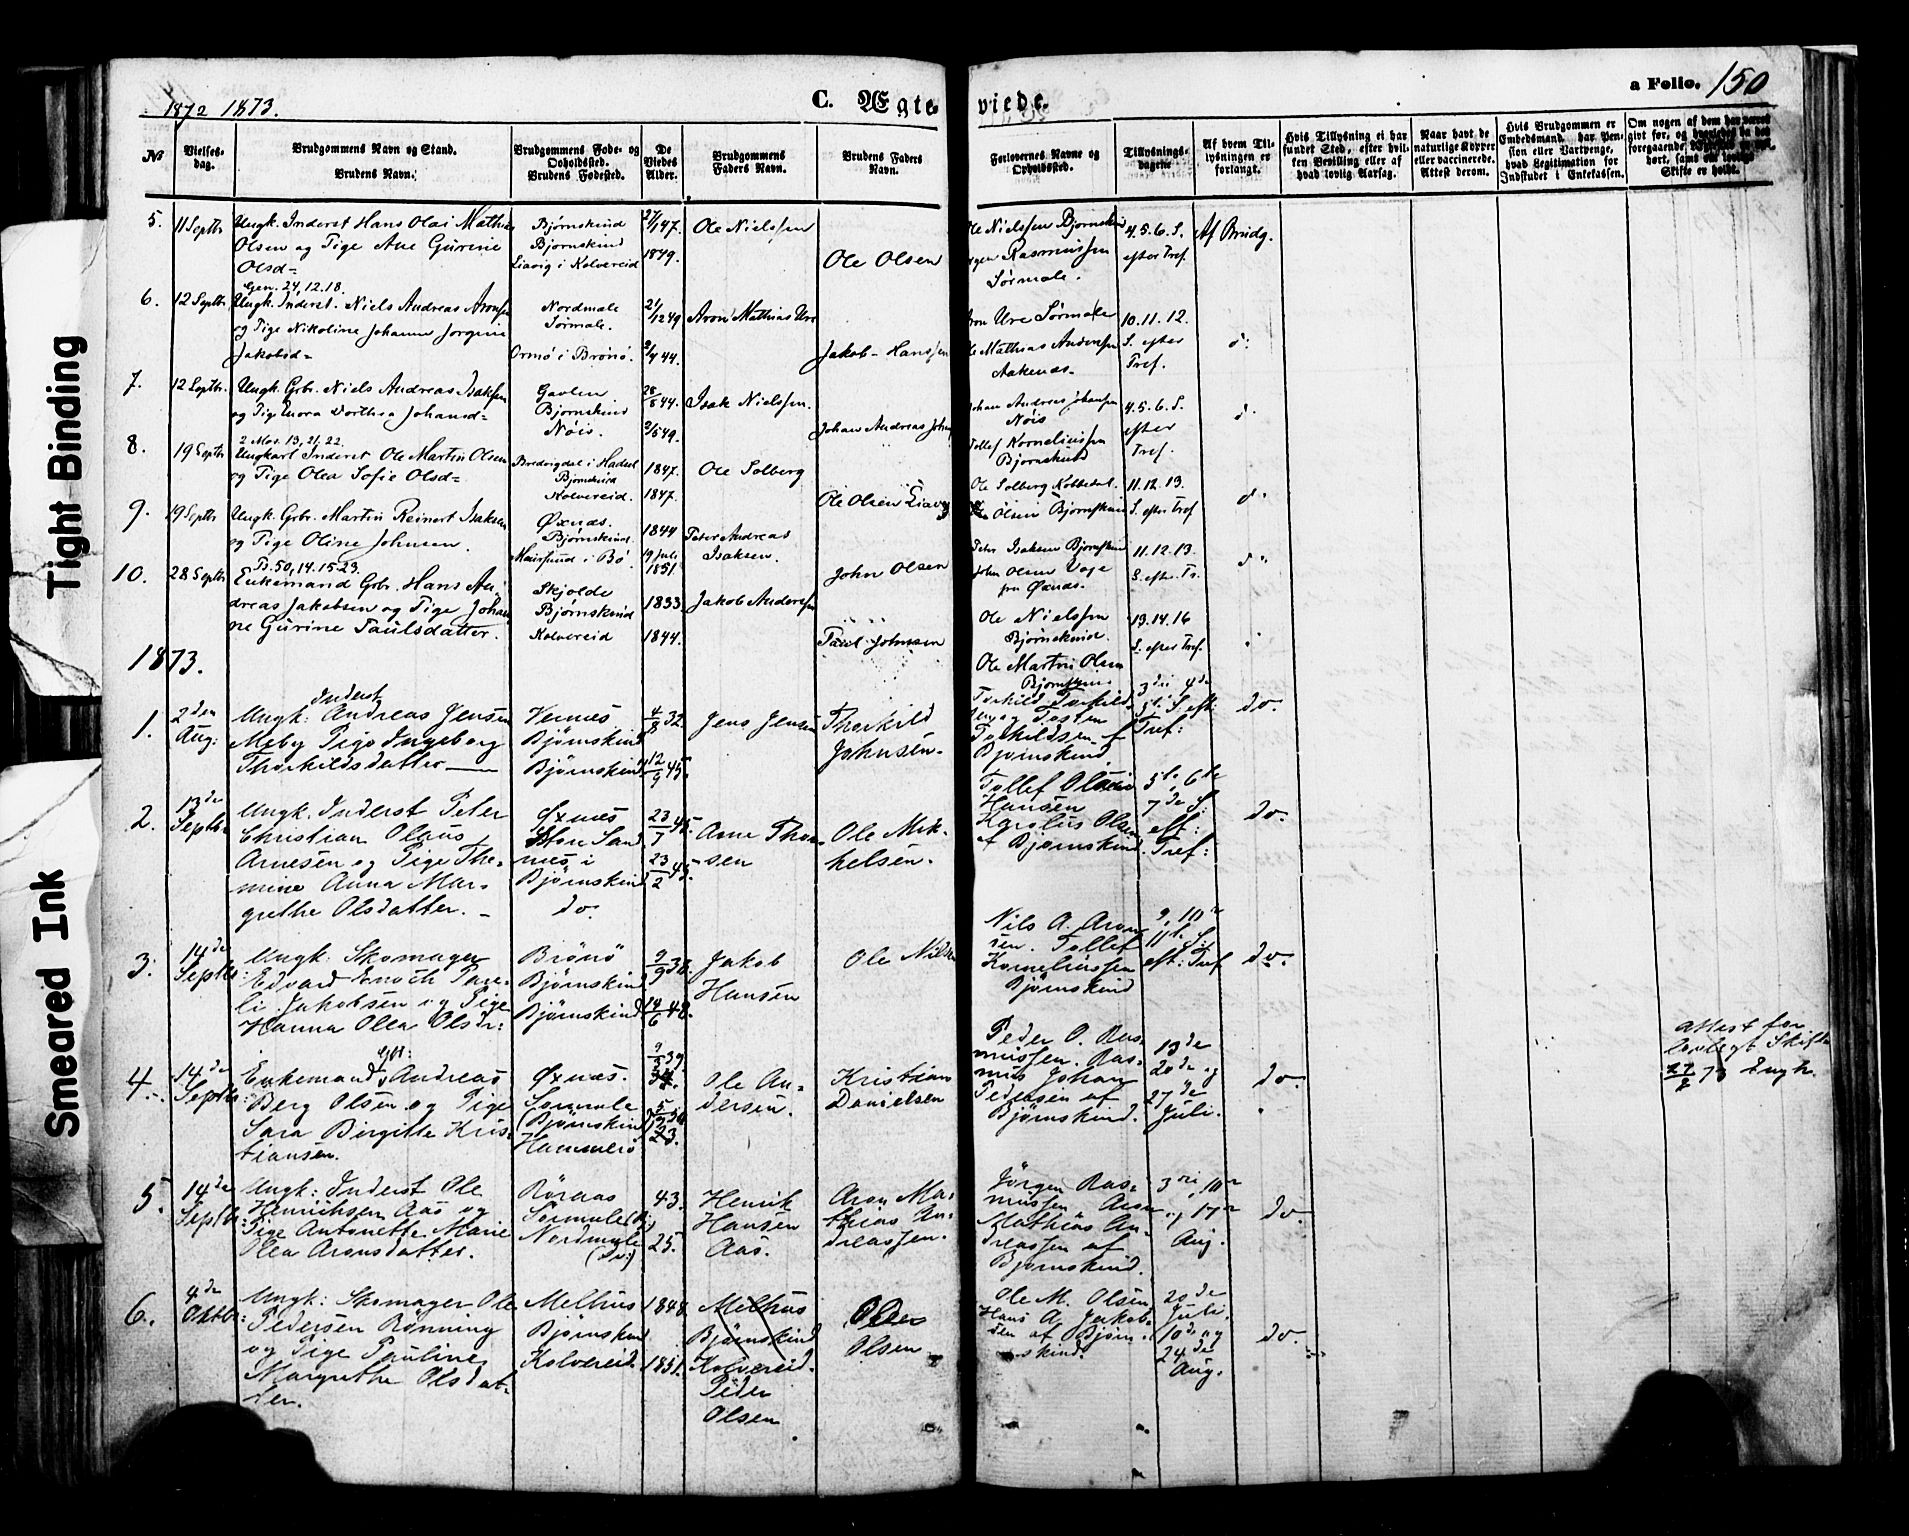 Tight Binding
Smeared Ink
1872 1873.
C. Ægteviede.
a Folio. 150
№
Vielsesdag.
Brudgommens Navn og Stand.
Brudens Navn.
Brudgommens Føde- og Opholdssted.
Brudens Fødested.
De Viedes Alder.
Brudgommens Faders Navn.
Brudens Faders Navn.
Forlovernes Navne og Opholdssted.
Tillysningsdagene
Af hvem Tillysningen er forlangt.
Hvis Tillysning ei har fundet Sted, efter hvilken Bevilling eller af hvad lovlig Aarsag.
Naar havt de naturlige Kopper eller vaccinerede. Attest derom.
Hvis Brudgommen er Embedsmand, har Pension eller Vartpenge, hvad Legitimation for Indskudet i Enkekassen.
Om nogen af dem har været gift før, og
Skifte er holdt.
5. 11 Septbr
Ungk. Inderst Hans Olai Mathias
Olsen og Pige Ane Gurine
Olsd=
Bjørnskind
Bjørnskind
Liavig i Kolvereid
27/1 47.
1849.
Ole Nielssen
Ole Olsen
Ole Nielssen Bjørnskind
Jørgen Rasmussen
Sørmole.
4.5.6. S.
efter Tref.
Af Brudg.
Gen. 24, 12.18.
6. 12 Septbr.
Ungk. Inderst. Niels Andreas Aronsen
og Pige Nikoline Johanna Jorgine
Jakobsd=
Nordmole
Sørmole.
Ormø i Brønø.
21/12 49
2/4 44.
Aron Mathias Ure
Jakob Hanssen
Aron Ure Sørmole
Ole Mathias Andersen
Aakenæs.
10.11.12.
S. efter
Tref.
d:
7. 12 Septbr.
Ungk. Grbr. Niels Andreas Isaksen
og Pige Nora Dorthea Johansd=
Gavlen
Bjørnskind
Nøis.
28/8 44.
2/5 49.
Isak Nielssen.
Johan Andreas Johns
Johan Andreas Johansen
Nøis
Tollef Korneliussen
Bjørnskind
4.5.6. S.
efter
Tref.
d.
2 Mos. 13, 21, 22.
8. 19 Septbr
Ungkarl Inderst Ole Martin Olsen
og Pige Olea Sofie Olsd=
Bredvigdal i Hadsel
Bjørnskind
Kolvereid.
1847.
1847.
Ole Solberg
Ole Olsen Liavig
Ole Solberg Kobbedal.
Ole Olsen Bjørnskind
11.12.13.
S. efter Tref
d.
9. 19 Septbr
Ungk. Grbr. Martin Reinert Isaksen
og Pige Oline Johnsen.
Øxnæs.
Bjørnskind.
i Bø.
1844
19 Juli
1851
Peter Andreas
Isaksen.
John Olsen
Peter Isaksen Bjørnskind
John Olsen Vage
fra Øxnæs.
11.12.13.
S. efter Tr.
d.
Ps. 50, 14. 15. 23.
10. 28 Septbr
Enkemand Grbr. Hans An-
dreas Jakobsen og Pige Johan
ne Gurine Paulsdatter.
Skjolde
Bjørnskind
Kolvereid
1833
1844.
Jakob Andersen
Paul Johnsen
Ole Nielssen
Bjørnskind.
Ole Martin Olsen
Bjørnskind
13.14.16
S. efter Tref.
1873.
1. 2den
Aug:
Inderst
Ungk: Andreas Jensen
Meby Pige Ingeborg
Thorkildsdatter
Vernes
Bjørnskind
Bjørnskind
4/8 32
12/9 45.
Jens Jensen
Thorkild
Johnsen.
Torkild Torkild-
sen og Torsten
Torkildsen af
Bjørnskind
3die 4de
5te S: eft:
Tref:
do.
2. 13de
Septbr
Ungk. Inderst Peter
Christian Olaus
Arnesen og Pige The-
mine Anna Mar-
grethe Olsdatter.
Øxnæs
Store Sand
næs i
Bjørnskind
do.
23/7 45.
23/2 45
Arne Thom-
sen
Ole Mik-
kelsen.
Tollef Olaus
Hansen
Karolus Olsen
af Bjørnskind.
5te 6te
7de S:
eft:
Tref:
do.
3. 14de
Septbr:
Ungk: Skomager
Edvard Enoch Pare-
li Jakobsen og Pige
Hanna Olea Olsdr:
Brönö
Bjørnskind
Bjørnskind
9/9 38.
14/6 48.
Jakob
Hansen
Ole Nilsen
Nils A. Aron
sen. Tollef
Korneliussen
Bjørnskind
9, 10de
11te S:
eft: Tref
do.
4. 14de
Septbr:
Gbr:
Enkemand Andreas
Berg Olsen og Pige
Sara Birgitte Kris-
tiansen.
Øxnæs.
Sörmole
(Bjørnskind)
Hammerö
Ole An-
dersen.
Kristian
Danielsen
Peder O. Ras-
mussen. Ras-
mus Johan
Pedersen af
Bjørnskind.
13de
20de og
27de
Juli.
do.
Attest for
Skifte
27/2 73 Engh.
5. 14de
Septbr:
Ungk: Inderst Ole
Henrichsen Aas og
Pige Antonette Marie
Olea Aronsdatter.
Röraas
Sörmole
Nordmole
(do)
43.
25.
Henrik
Hansen
Aas.
Aron Ma-
thias An-
dreassen.
Jörgen Ras-
mussen Aron
Mathias An-
dreassen af
Bjørnskind.
3die, 10de
og 17de
Aug.
do.
6. 4de
Oktbr:
Ungk: Skomager Ole
Pedersen Rönning
og Pige Pauline
Margrethe Olsdat-
ter.
Melhus
Bjørnskind
Kolvereid.
1848
1851.
Melhus
Bjørnskind
Kolvereid.
Peder
Olsen
Ole
Olsen
Ole M. Olsen
Hans A. Jakob-
sen af Bjørn-
skind.
20de
Juli.
10de og
24de
Aug.
do.